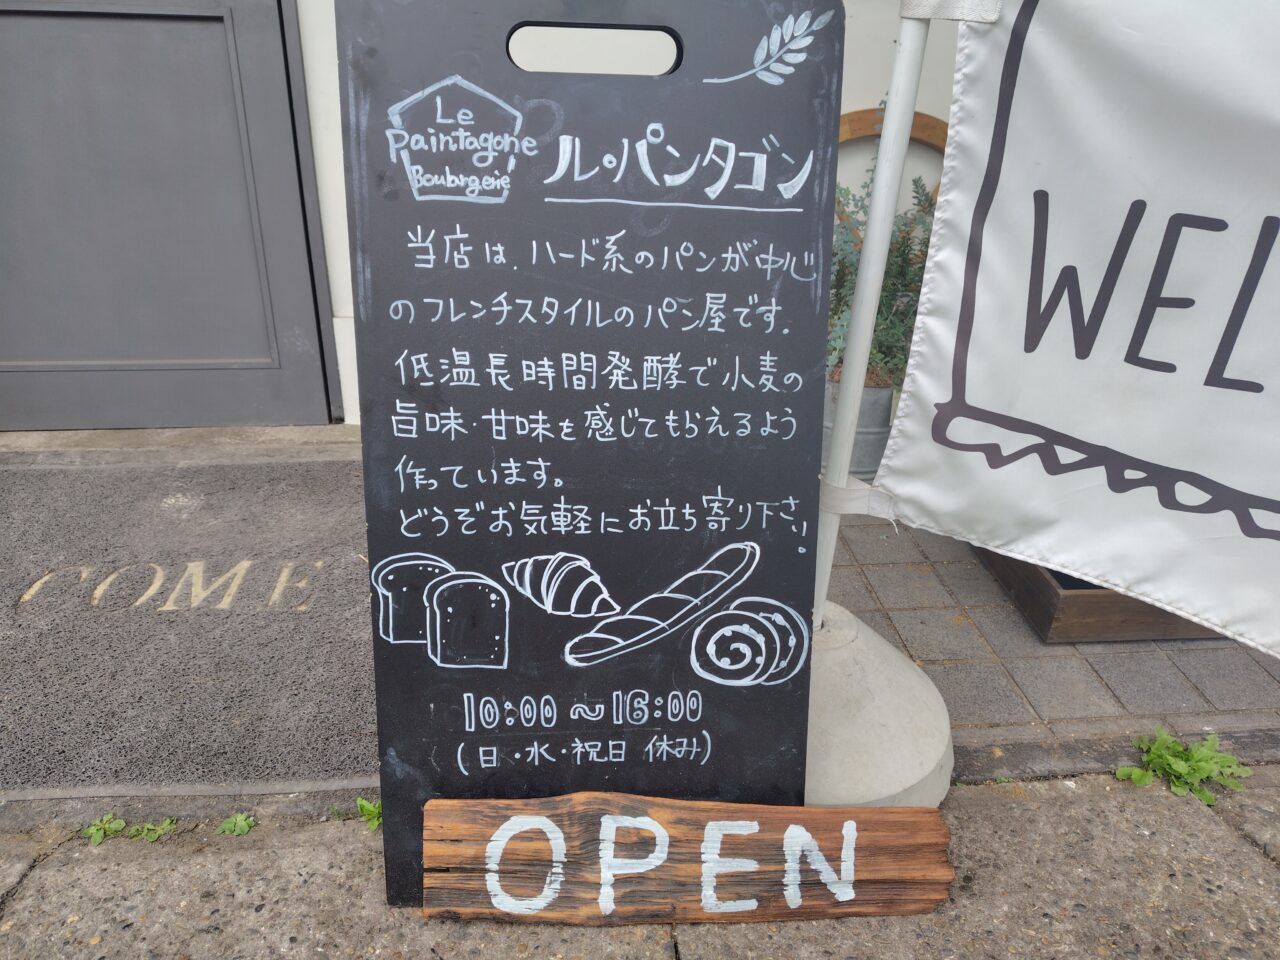 Le
Paintagone
Boulangerie
ル・パンタゴン
当店は、ハード系のパンが中心
のフレンチスタイルのパン屋です.
低温長時間発酵で小麦の
旨味・甘味を感じてもらえるよう
作っています。
どうぞお気軽にお立ち寄り下さい。
10:00～16:00
(日・水・祝日 休み)
OPEN
WEL
COME